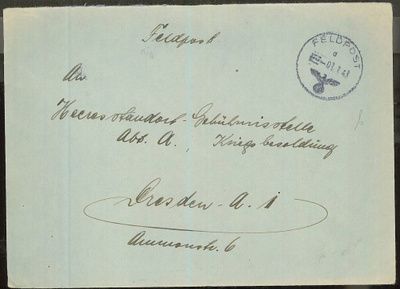 Feldpost
FELDPOST
a
07.1.43
An
Heeresstandort-Gebührnisstelle
Abt. A., Kriegsbesoldung
Dresden-A. 1
Ammonstr. 6